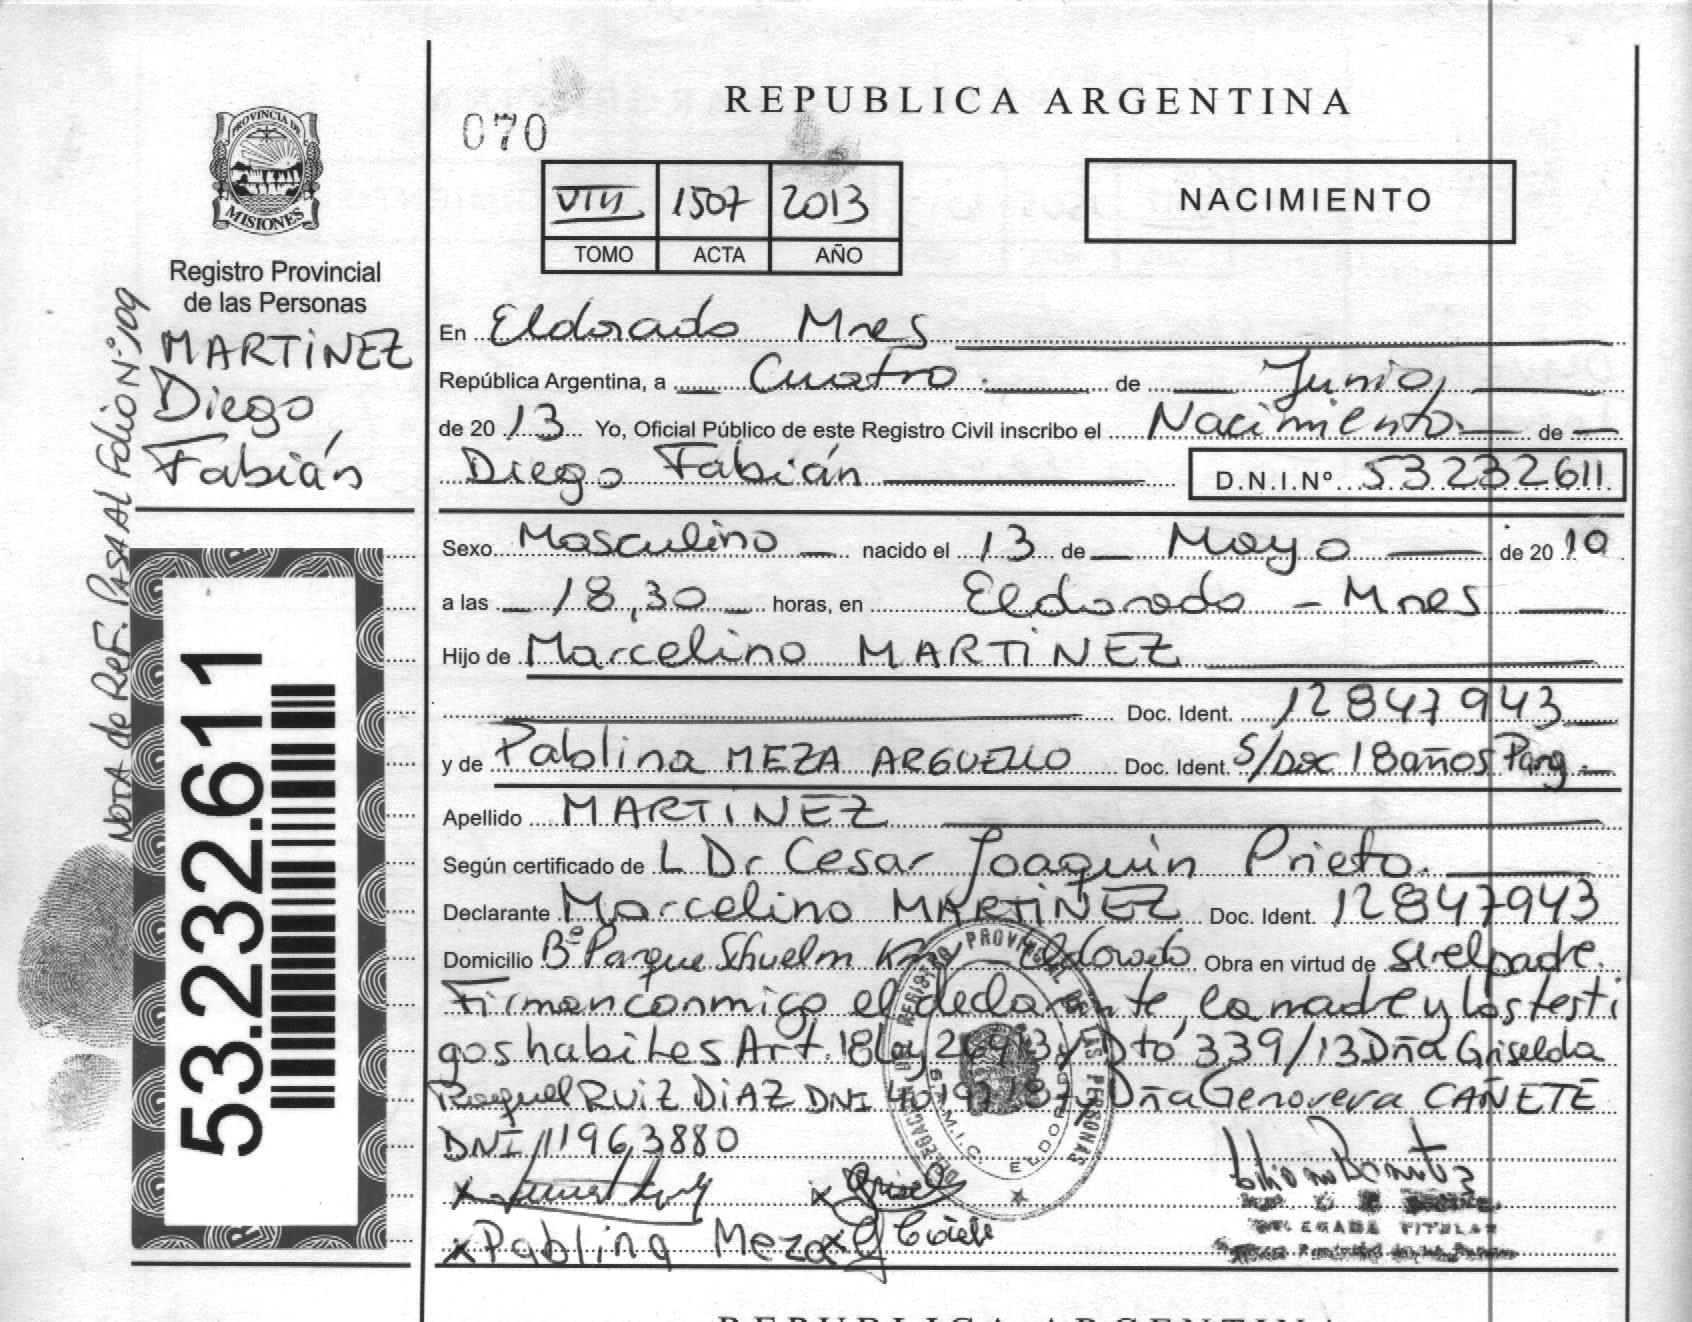 REPUBLICA ARGENTINA
070
PROVINCIA DE
MISIONES
Registro Provincial
de las Personas
MARTiNEZ
Diego
Fabián
NOTA de ReF. PASA AL Folio Nº 109
53.232.611
VIII 1507 2013
TOMO ACTA AÑO
NACIMIENTO
En Eldorado Mnes
República Argentina, a Cuatro de Junio,
de 20 13 Yo, Oficial Público de este Registro Civil inscribo el Nacimiento de
Diego Fabián D.N.I.Nº 53232611
Sexo Masculino nacido el 13 de Mayo de 20 10
a las 18,30 horas, en Eldorado - Mnes
Hijo de Marcelino MARTiNEZ
Doc. Ident. 12847943
y de Pablina MEZA ARGUELLO Doc. Ident. S/Doc 18 años Parg.
Apellido MARTiNEZ
Según certificado de L Dr Cesar Joaquin Prieto.
Declarante Marcelino MARTiNEZ Doc. Ident. 12847943
Domicilio Bº Parque Eldorado Obra en virtud de ser el padre.
Firman conmigo el declarante, la madre y los testi
gos habiles Art. 18 Ley 26413 y Dto 339/13 Dña Griselda
Raquel RUiZ DiAZ DNI y Dña Genoveva CAÑETE
DNI 11963880
Pablina Meza
DELEGADA TITULAR
REGISTRO PROVINCIAL DE LAS PERSONAS
DELEGACION
ELDORADO
REPUBLICA ARGENTINA